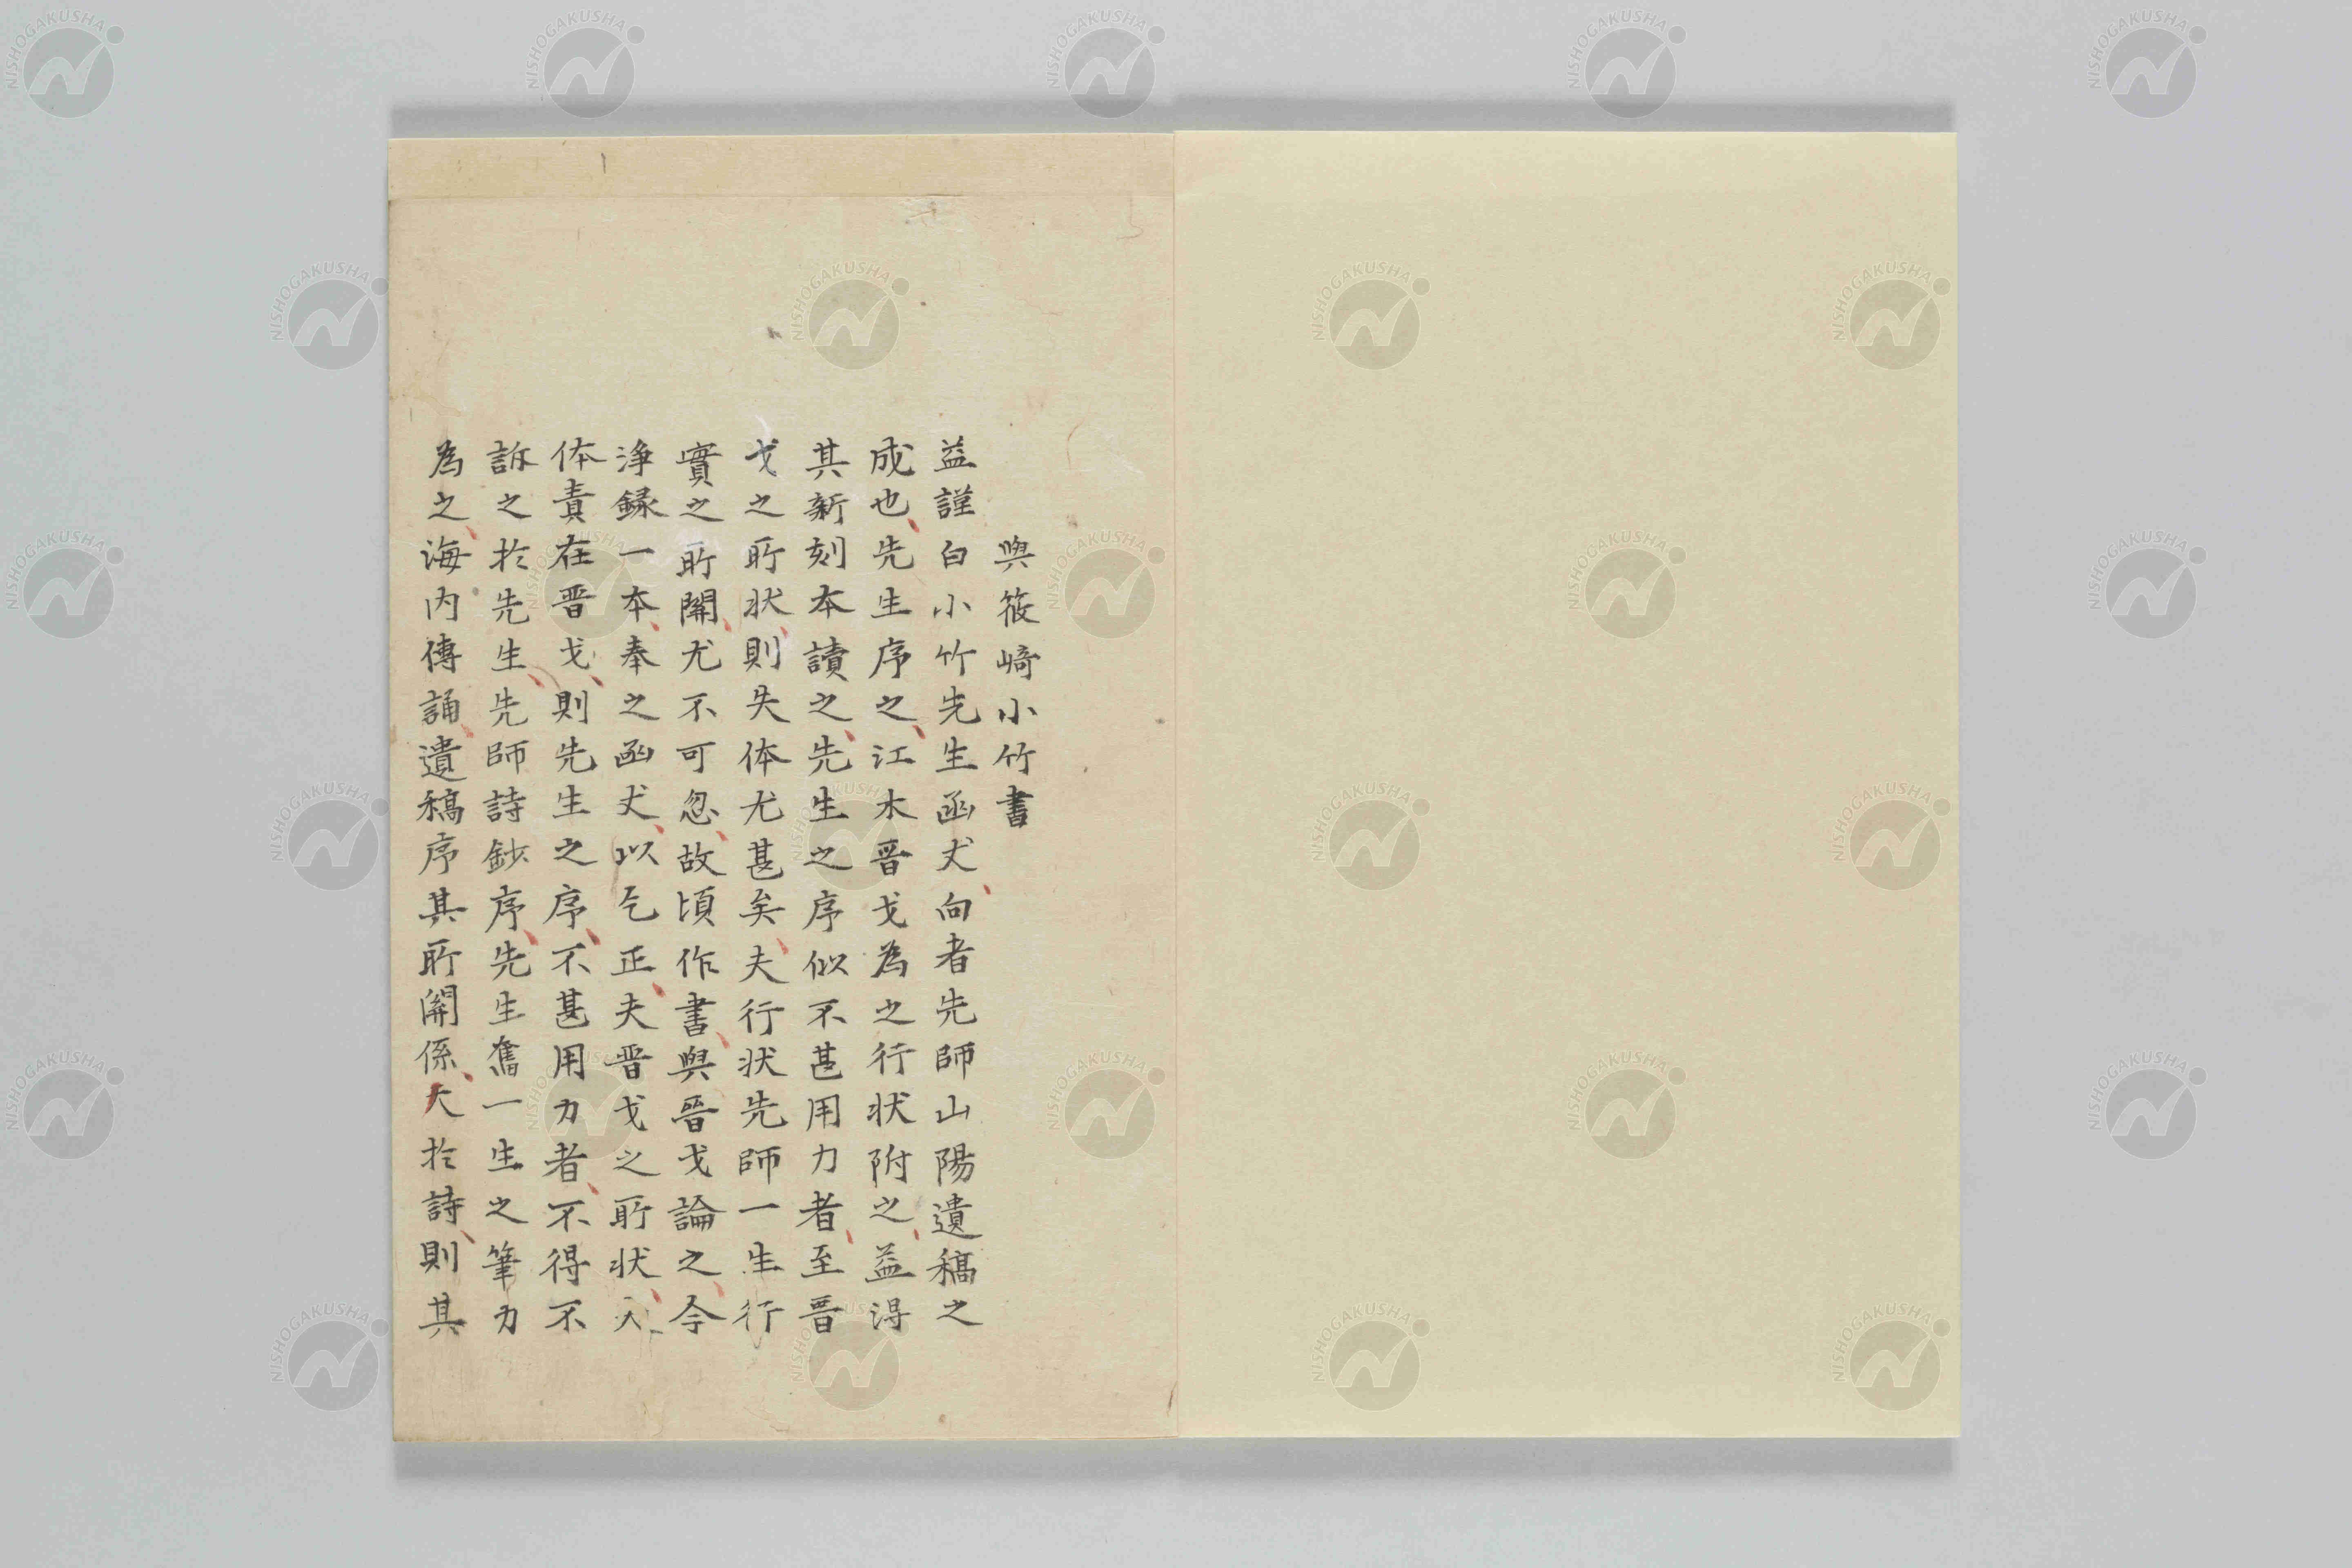 與筱﨑小竹書
益謹白小竹先生函丈向者先師山陽遺稿之
成也先生序之江木晋戈為之行状附之益得
其新刻本讀之先生之序似不甚用力者至晋
戈之所状則失体尤甚矣夫行状先師一生行
實之所關尤不可忽故頃作書與晋戈論之今
浄録一本奉之函丈以乞正夫晋戈之所状失
体責在晋戈則先生之序不甚用力者不得不
訴之於先生先師詩鈔序先生奮一生之筆力
為之海内傳誦遺稿序其所關係大於詩則其